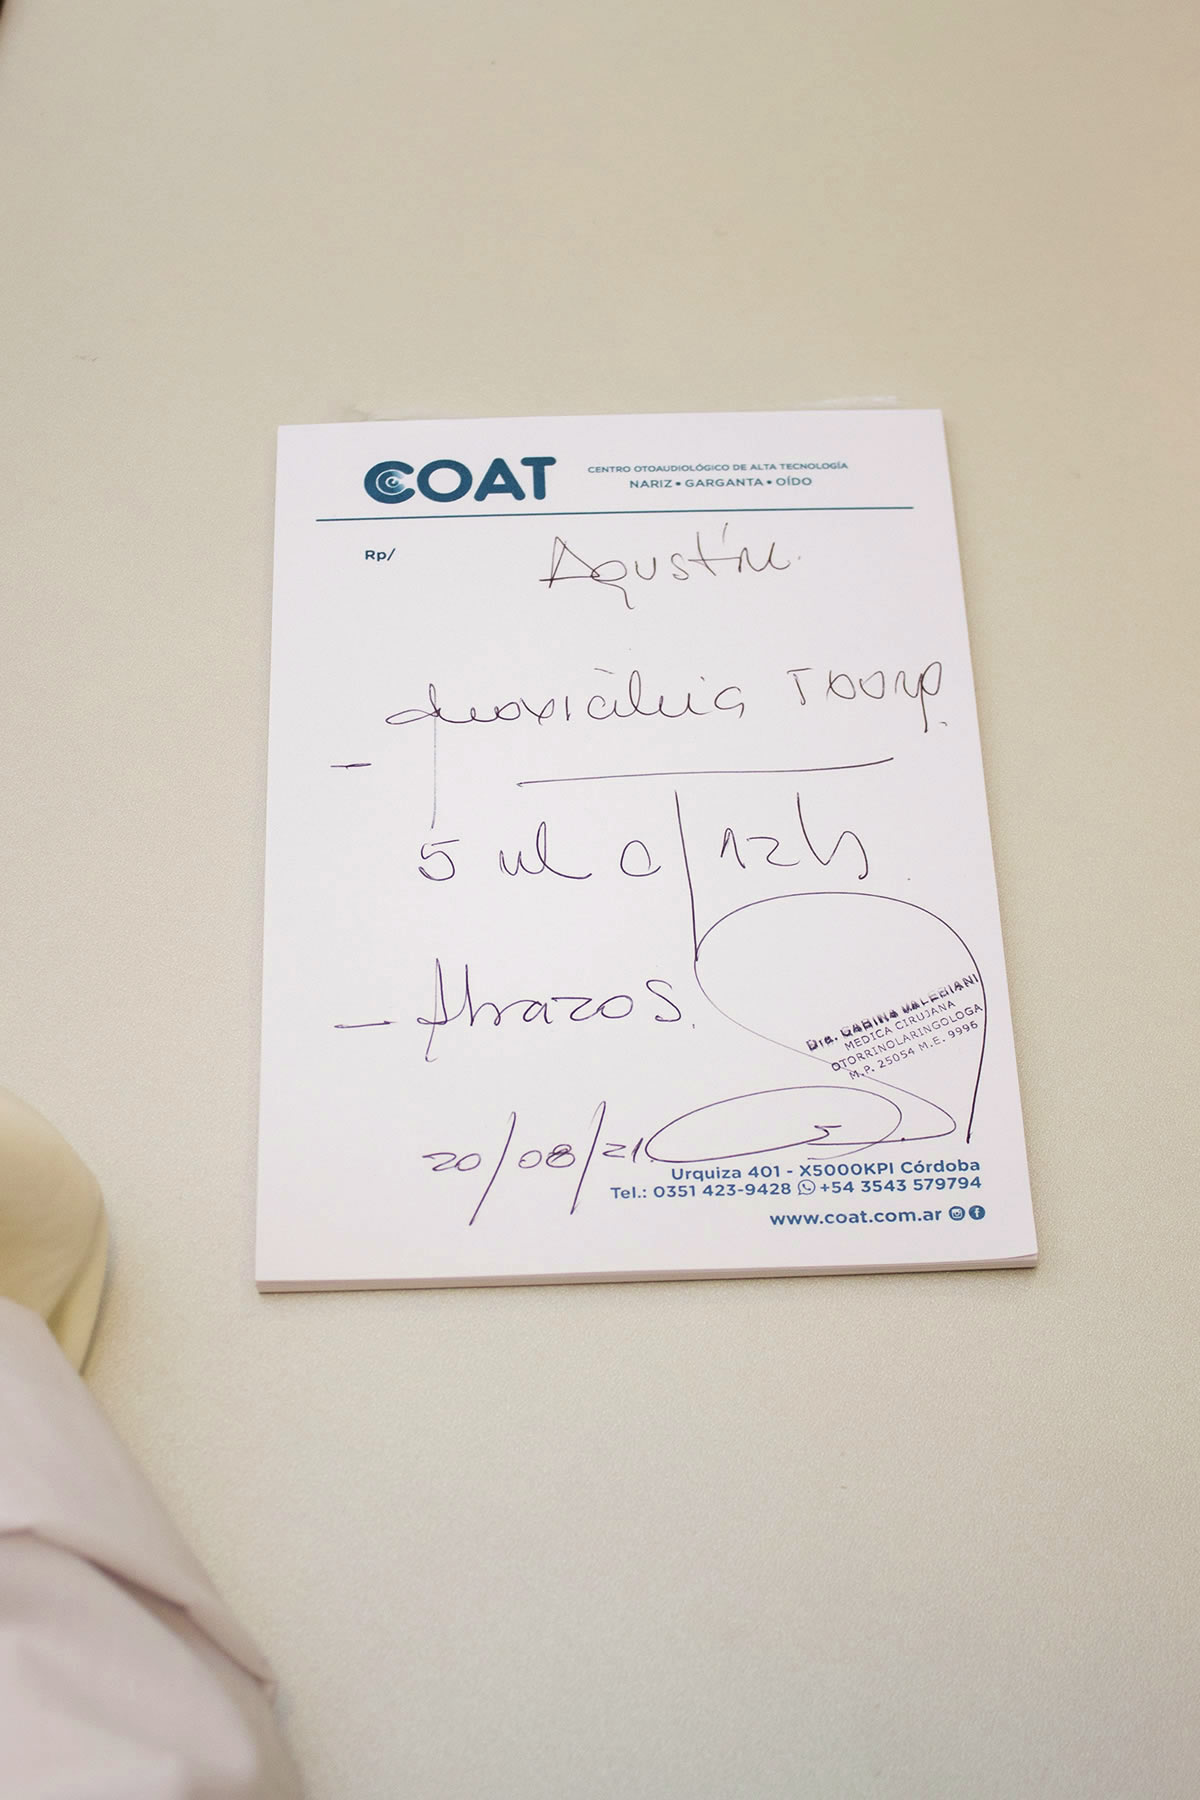 COAT
CENTRO OTOAUDIOLÓGICO DE ALTA TECNOLOGÍA
NARIZ • GARGANTA • OÍDO
Rp/
Agustín.
-
5 ml c/12hs
- Abrazos.
Dra. VALERIANI
MEDICA CIRUJANA
OTORRINOLARINGOLOGA
M.P. 25054 M.E. 9996
20/08/21.
Urquiza 401 - X5000KPI Córdoba
Tel.: 0351 423-9428 +54 3543 579794
www.coat.com.ar